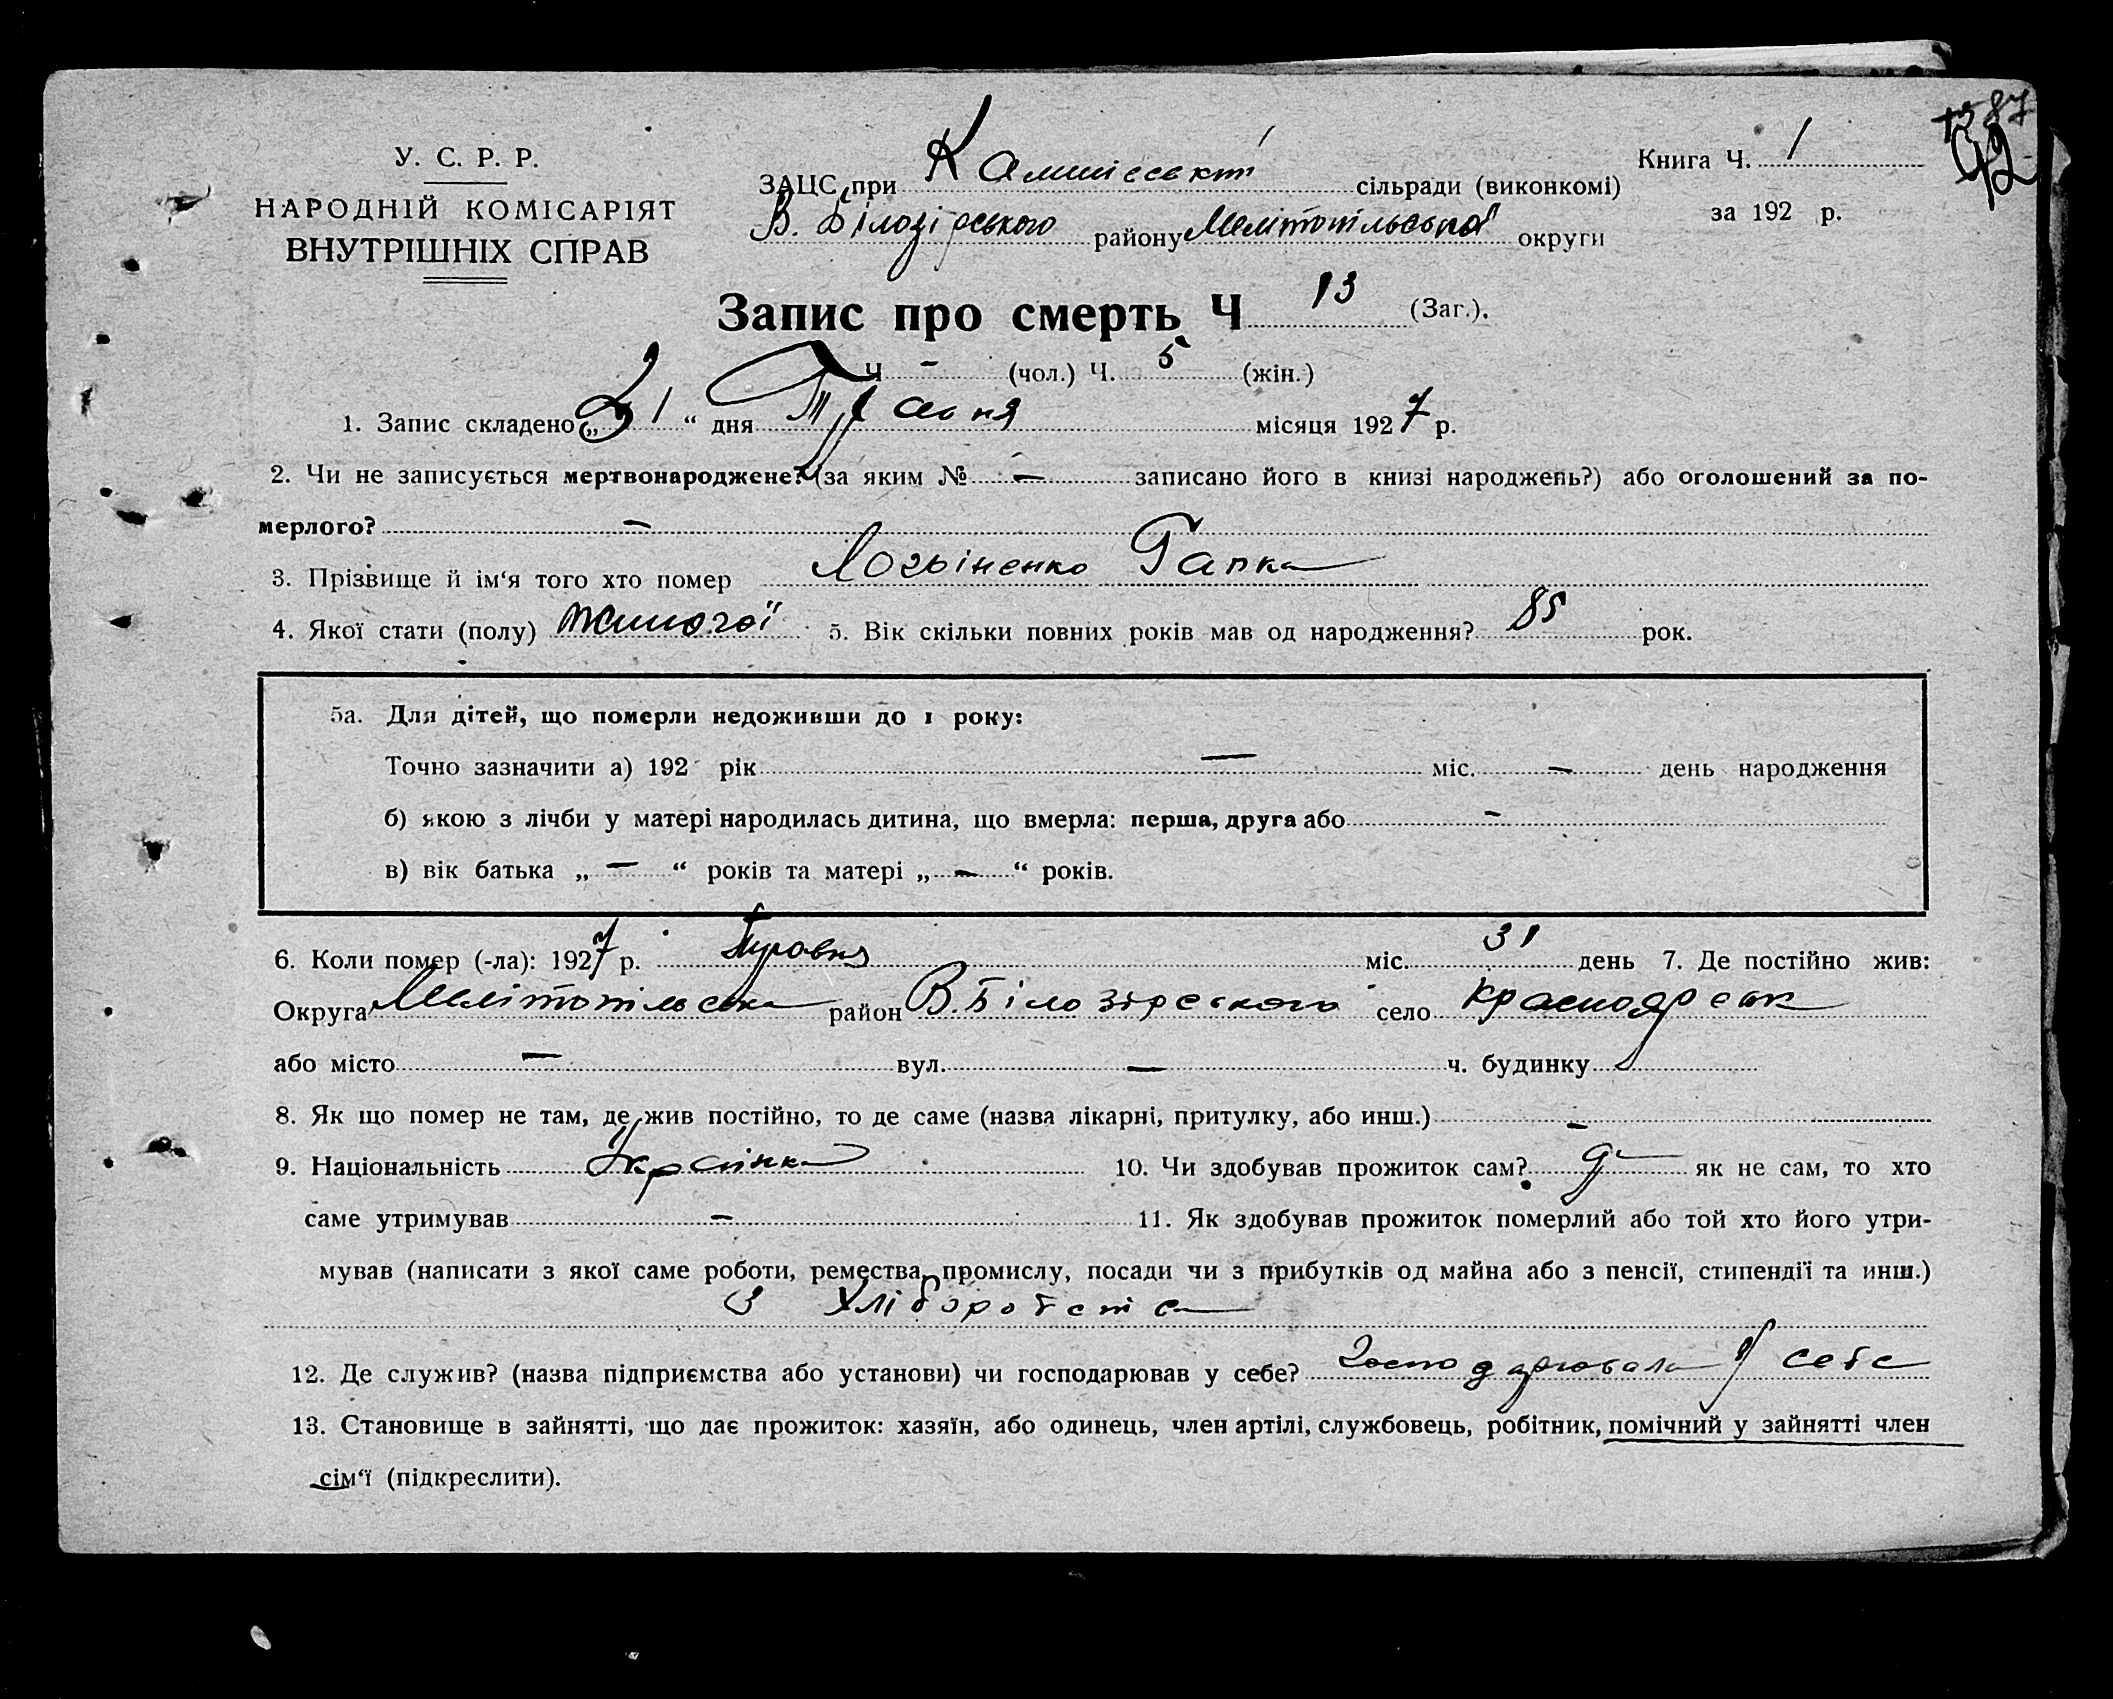 1587
92
У. С. Р. Р.
НАРОДНІЙ КОМІСАРІЯТ
ВНУТРІШНІХ СПРАВ
ЗАЦС при сільради (виконкомі)
В. Білозірського району Мелітопільської округи
Книга Ч. 1
за 192 р.
Запис про смерть Ч 13 (Заг.).
Ч – (чол.) Ч. 5 (жін.)
1. Запис складено „31“ дня Травня місяця 1927 р.
2. Чи не записується мертвонароджене? (за яким № — записано його в книзі народжень?) або оголошений за по-
мерлого? —
3. Прізвище й ім‘я того хто помер Логвіненко Гапка
4. Якої стати (полу) жиночої 5. Вік скільки повних років мав од народження? 85 рок.
5а. Для дітей, що померли недоживши до 1 року:
Точно зазначити а) 192 рік — міс. — день народження
б) якою з лічби у матері народилась дитина, що вмерла: перша, друга або –
в) вік батька „ — “ років та матері „ — “ років.
6. Коли помер (-ла): 1927 р. Травня міс. 31 день 7. Де постійно жив:
Округа Мелітопільська район В. Білозірського село Красноярськ
або місто — вул. — ч. будинку
8. Як що помер не там, де жив постійно, то де саме (назва лікарні, притулку, або инш.) –
9. Національність Українка 10. Чи здобував прожиток сам? як не сам, то хто
саме утримував – 11. Як здобував прожиток померлий або той хто його утри-
мував (написати з якої саме роботи, ремества, промислу, посади чи з прибутків од майна або з пенсії, стипендії та инш.)
З Хліборобства
12. Де служив? (назва підприємства або установи) чи господарював у себе? Господарювала у себе
13. Становище в зайнятті, що дає прожиток: хазяїн, або одинець, член артілі, службовець, робітник, помічний у зайнятті член
сім‘ї (підкреслити).